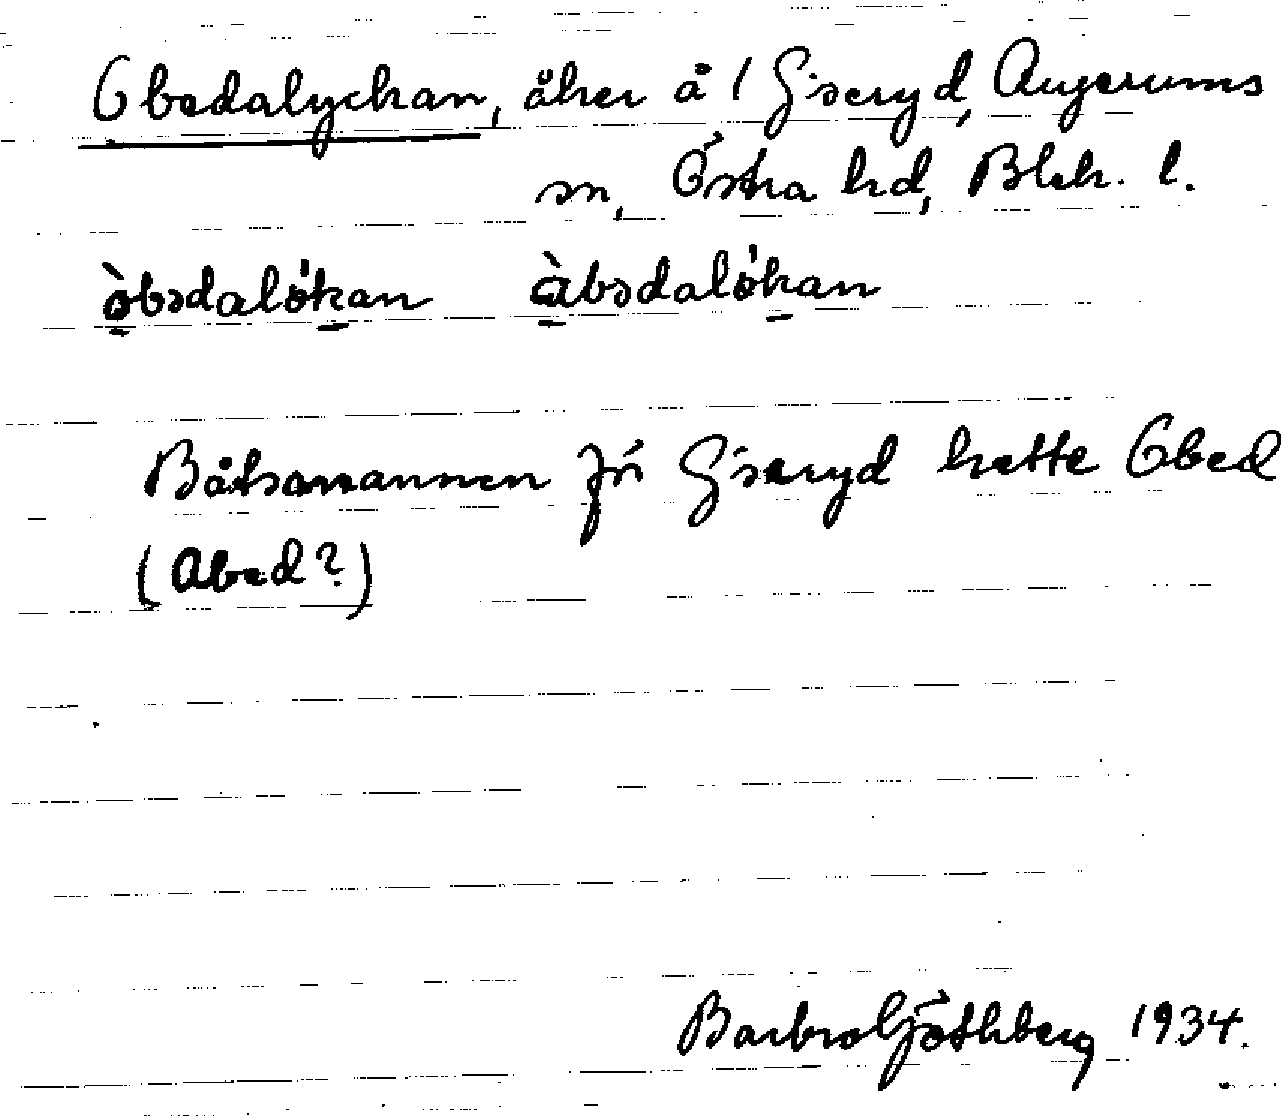 Obedalyckan, åker å 1 Giseryd, Augerums
sn, Östra hd, Blek. l.
òbədalökan àbədalökan
Båtsmannen frå Giseryd hette Obed
(Abed?)
Barbro Göthberg 1934.